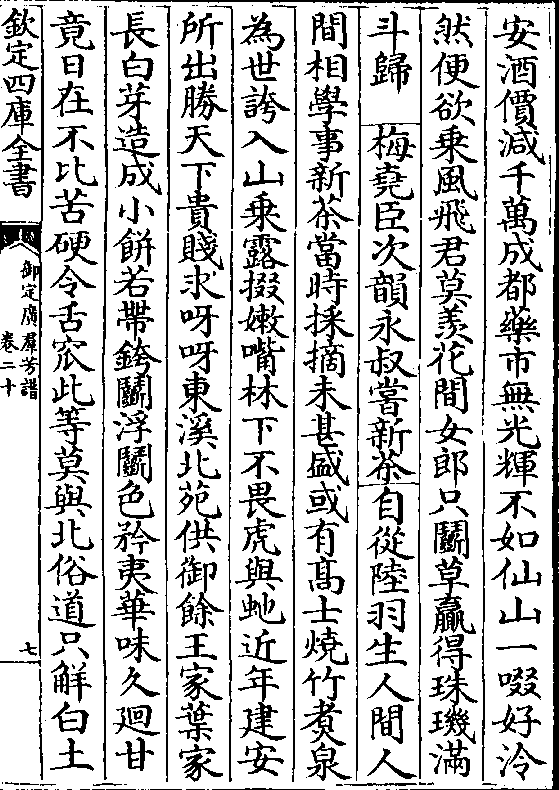 安酒價減千萬成都藥市無光輝不如仙山一啜好泠
然便欲乗風飛君莫羡花間女郎只鬭草贏得珠璣滿
斗歸　梅堯臣次韻永叔嘗新茶自從陸羽生人間人
間相學事新茶當時採摘未甚盛或有髙士燒竹煑泉
為世誇入山乗露掇嫩嘴林下不畏虎與虵近年建安
所出勝天下貴賤求呀呀東溪北苑供御餘王家葉家
長白芽造成小餅若帶銙鬭浮鬭色矜夷華味久廻甘
竟日在不比苦硬令舌窊此等莫與北俗道只解白土
欽定四庫全書
御定廣羣芳譜
卷二十
七